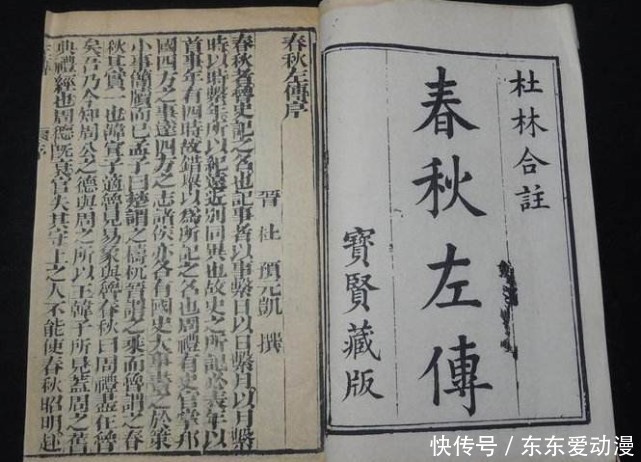 杜林合註
春秋左傳
寶賢藏版
春秋左傳序
晉 杜 預元凱 撰
春秋者魯史記之名也記事者以事繫日以日繫月以月繫
時以時繫年所以紀遠近別同異也故史之所記必表年以
首事年有四時故錯舉以爲所記之名也周禮有史官掌邦
國四方之事達四方之志諸侯亦各有國史大事書之於策
小事簡牘而已孟子曰楚謂之檮杌晉謂之乘而魯謂之春
秋其實一也韓宣子適魯見易象與魯春秋曰周禮盡在魯
矣吾乃今知周公之德與周之所以王韓子所見蓋周之舊
典禮經也周德既衰官失其守上之人不能使春秋昭明赴
快传号／东东爱动漫